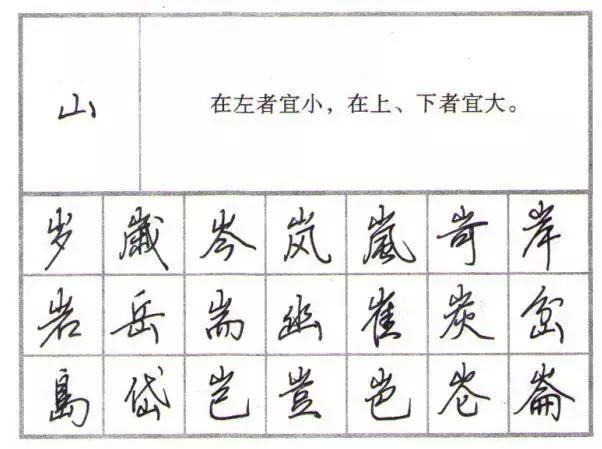 山 在左者宜小，在上、下者宜大。
岁 歲 岑 岚 嵐 岢 岸
岩 岳 耑 幽 崔 炭 岔
島 岱 岂 豈 岜 崙